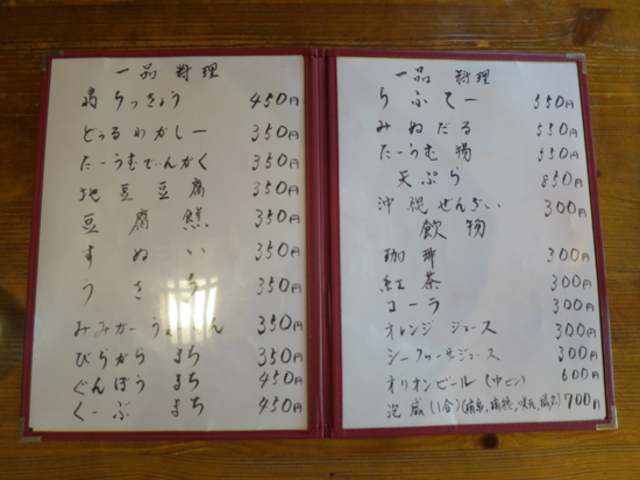 一品料理
島らっきょう 450円
どぅるわかしー 350円
たーうむでぃんがく 350円
地豆豆腐 350円
豆腐 350円
すぬい 350円
うさち 350円
みみがー 350円
びらがら まち 350円
ぐんぼう まち 450円
くーぶ まち 450円
一品料理
らふてー 550円
みぬだる 550円
たーうむ物 550円
天ぷら 850円
沖縄ぜんざい 300円
飲物
珈琲 300円
紅茶 300円
コーラ 300円
オレンジジュース 300円
シークヮーサージュース 300円
オリオンビール(中ビン) 600円
泡盛(1合) 700円